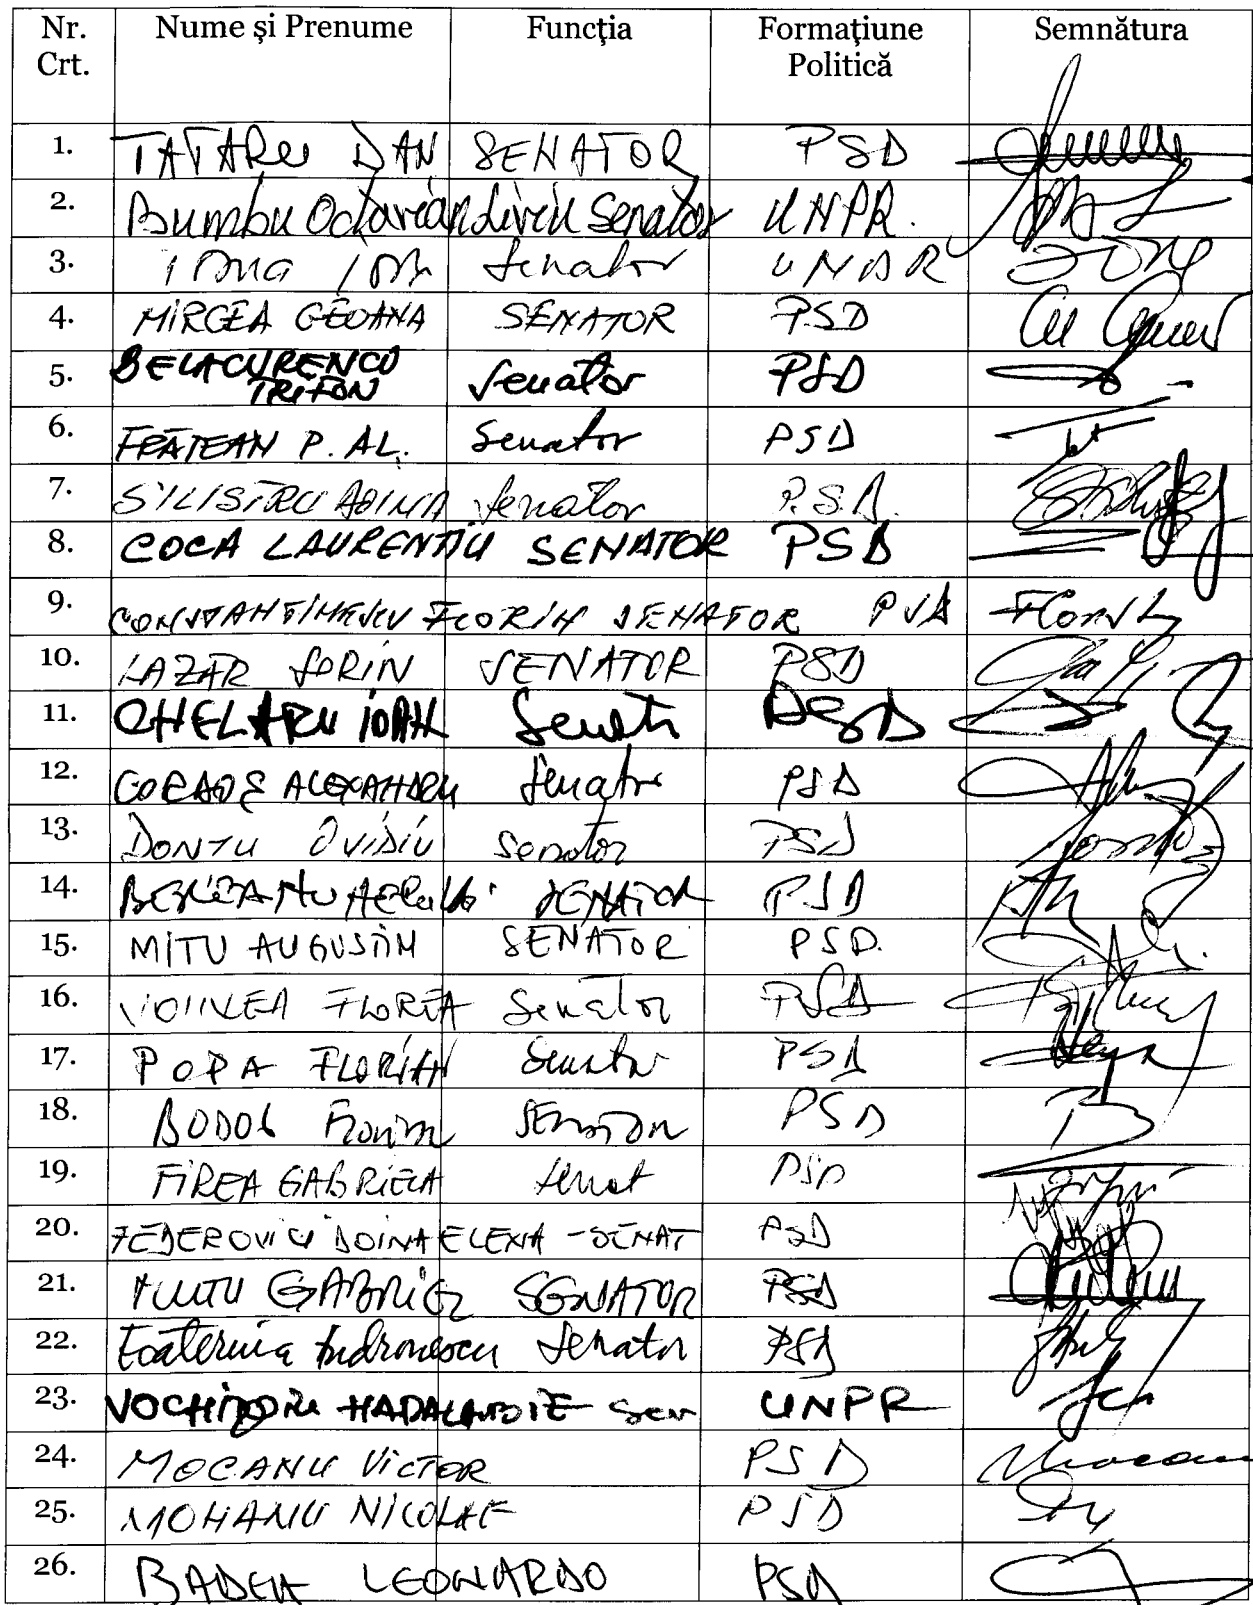 Nr. Crt. Nume și Prenume Funcția Formațiune Politică Semnătura
1. TATARU DAN SENATOR PSD
2. Bumbu Octavian Liviu Senator UNPR.
3. Senator UNPR
4. MIRCEA GEOANA SENATOR PSD
5. BELACURENCO TRIFON Senator PSD
6. FRĂTEAN P. AL. Senator PSD
7. SILISTRU DOINA Senator P.S.D.
8. COCA LAURENTIU SENATOR PSD
9. CONSTANTINESCU FLORIN SENATOR PSD
10. LAZĂR SORIN SENATOR PSD
11. CHELARU IOAN PSD
12. ALEXANDRU Senator PSD
13. DONTU OVIDIU Senator PSD
14. SENATOR PSD
15. MITU AUGUSTIN SENATOR PSD.
16. VOINEA FLOREA Senator PSD
17. POPA FLORIAN Senator PSD
18. BODOG PSD
19. FIREA GABRIELA Senat PSD
20. FEDEROVICI DOINA ELENA - SENAT PSD
21. MUTU GABRIEL SENATOR PSD
22. Ecaterina Andronescu Senator PSD
23. Sen UNPR
24. MOCANU VICTOR PSD
25. MOHANU NICOLAE PSD
26. BADEA LEONARDO PSD